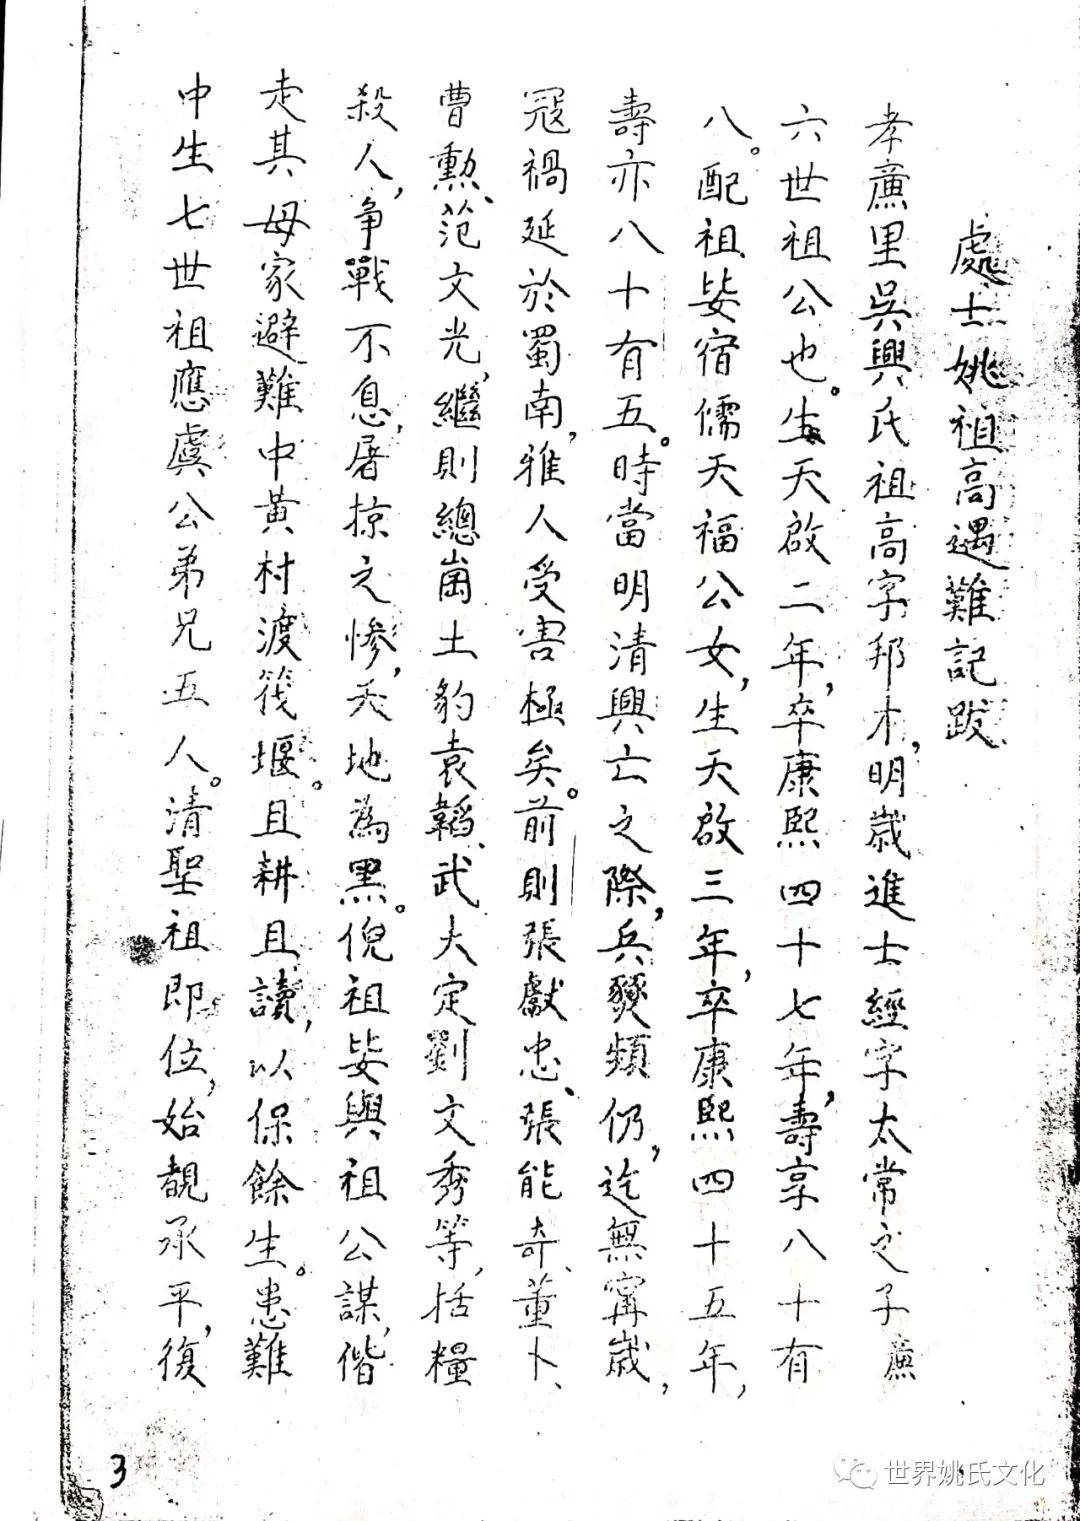 處士姚祖高遇難記跋
孝廉里吳興氏祖高字邦才，明歲進士經字太常之子廉
六世祖公也。生天啟二年，卒康熙四十七年，壽享八十有
八。配祖妣宿儒天福公女，生天啟三年，卒康熙四十五年，
壽亦八十有五。時當明清興亡之際，兵燹頻仍，迄無甯歲，
冦禍延於蜀南，雅人受害極矣。前則張獻忠、張能奇、董卜、
曹勳、范文光，繼則總崗土豹袁韜、武大定劉文秀等，括糧
殺人，争戰不息，屠掠之慘，天地為黑。倪祖妣與祖公謀，偕
走其母家避難中黃村渡筏堰。且耕且讀，以保餘生。患難
中生七世祖應虞公弟兄五人。清聖祖即位，始覩承平，復
3
世界姚氏文化